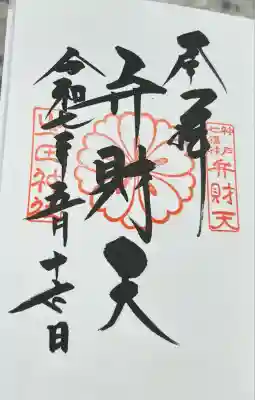 奉拝
神戸
七福神
弁財天
弁財天
令和七年五月十七日